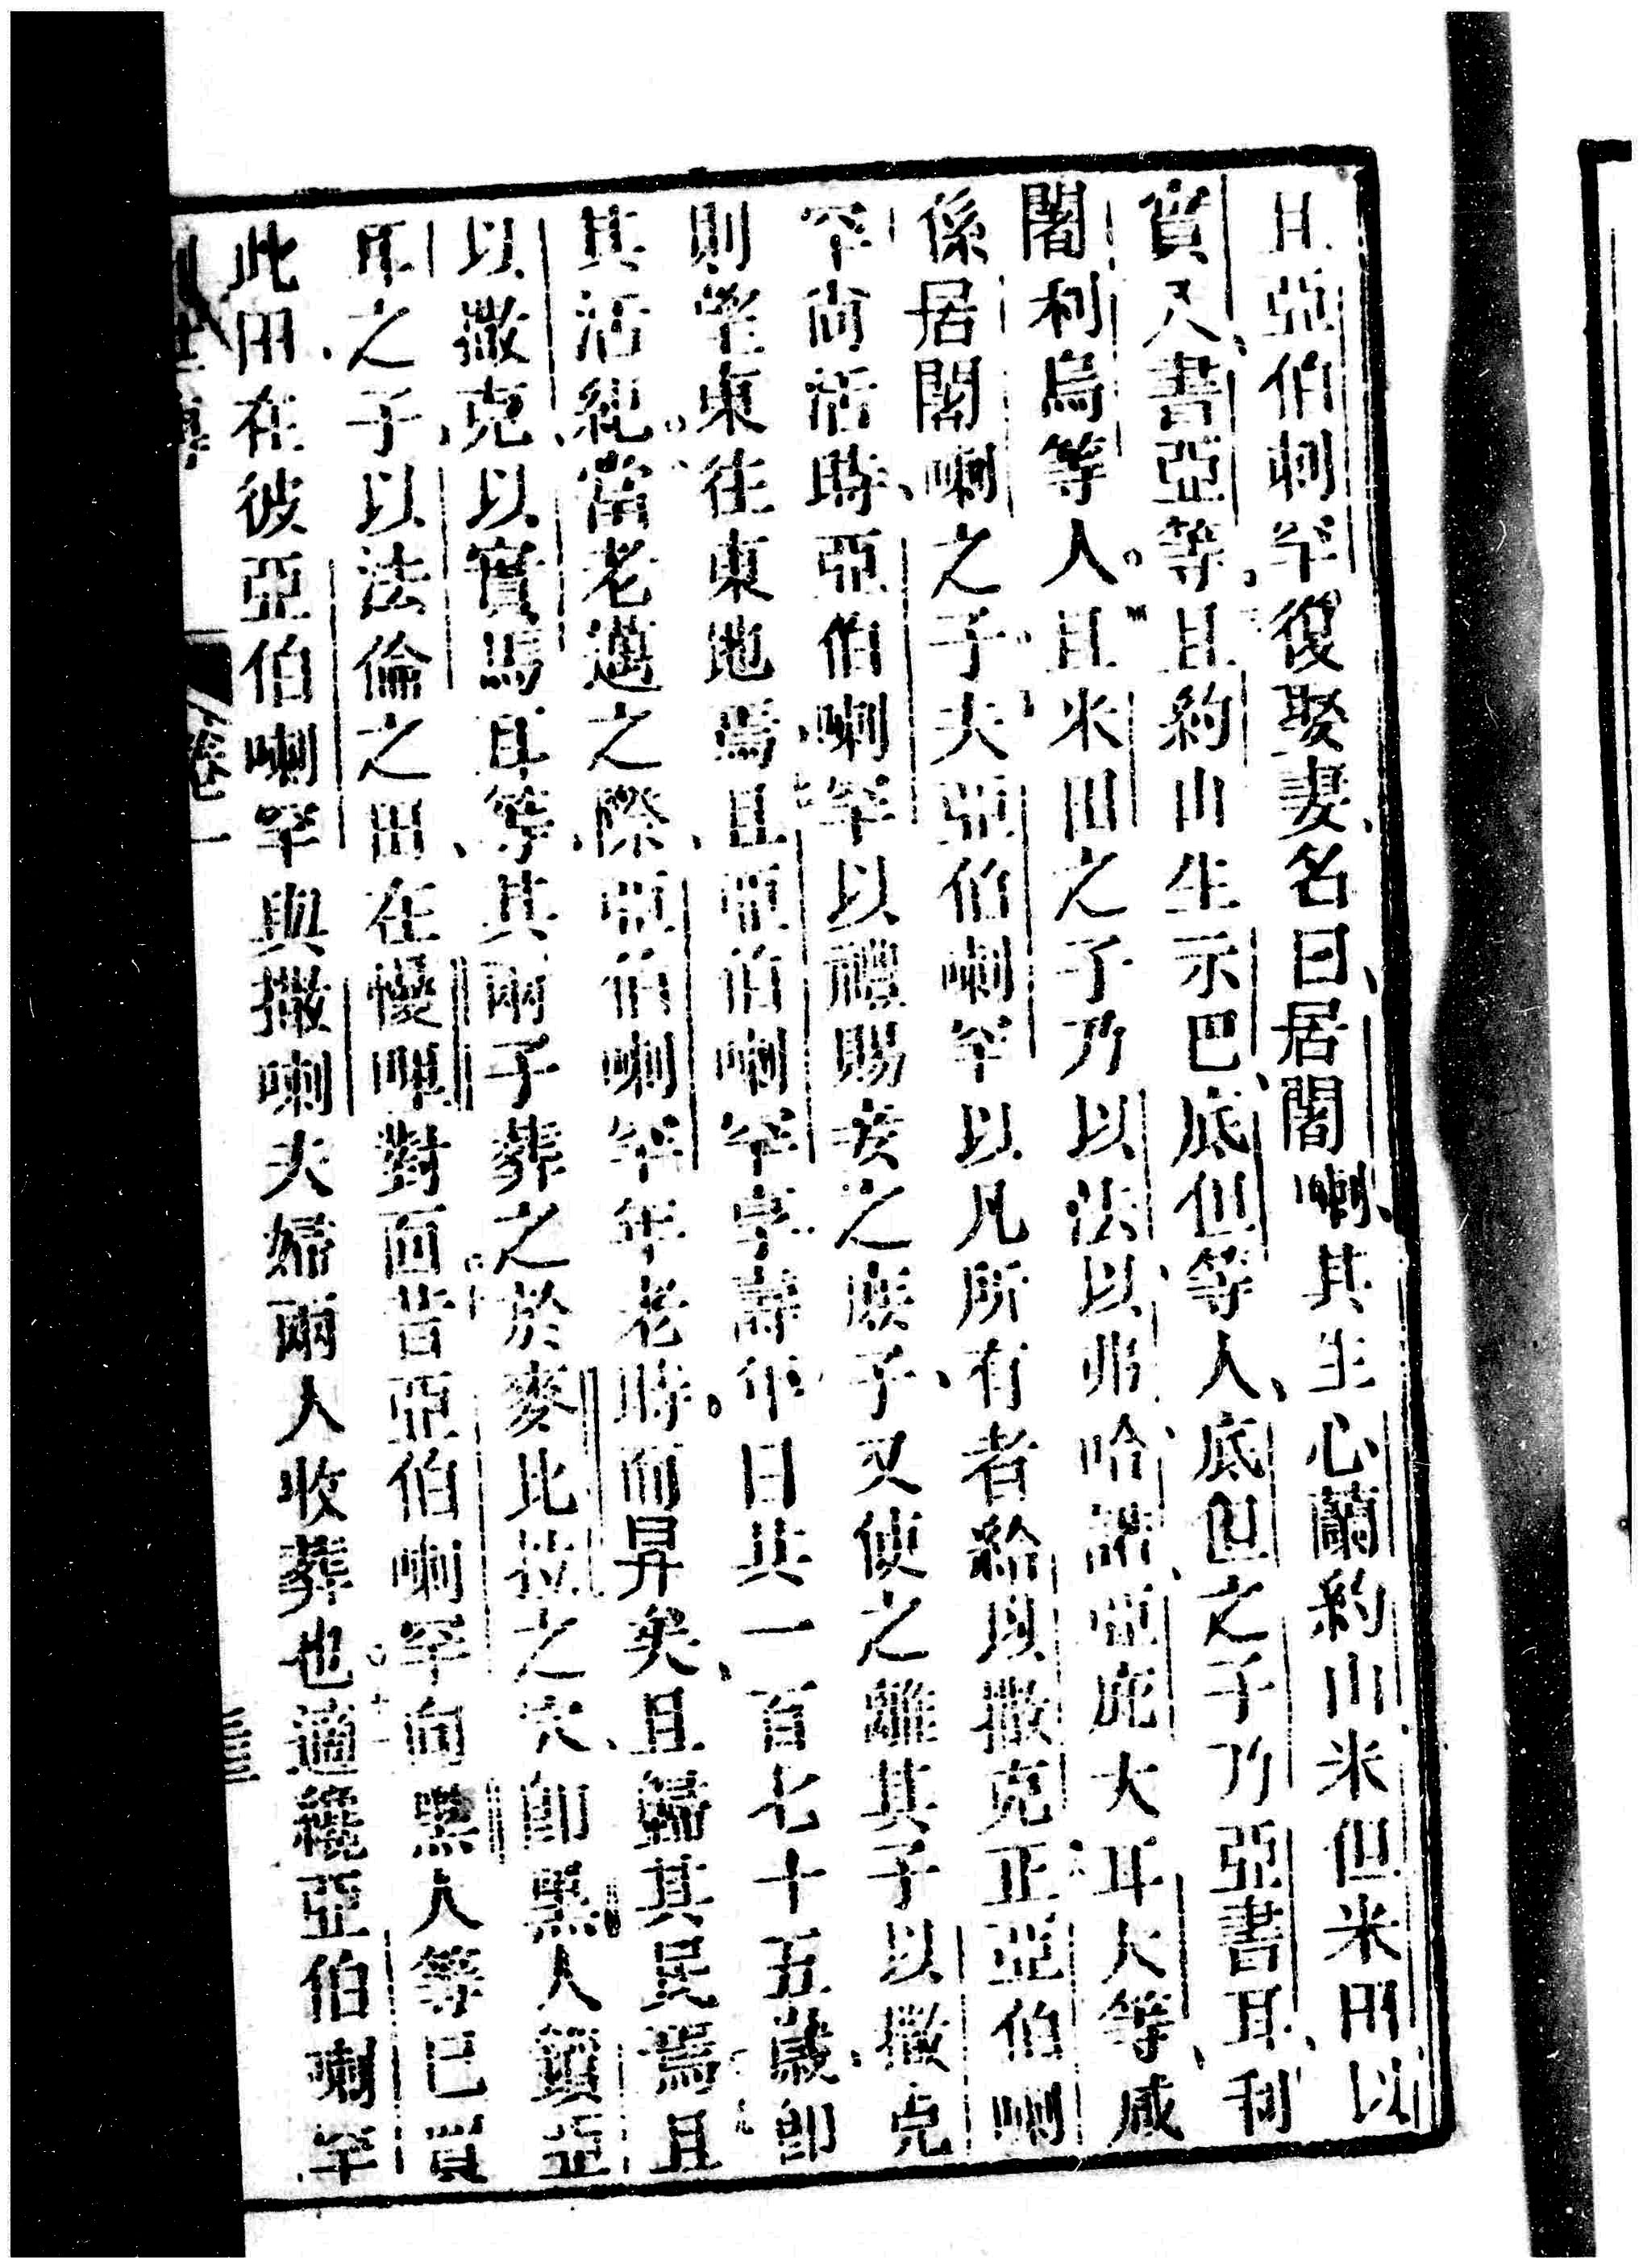 且亞伯喇罕復娶妻、名曰、居闍喇、其生心蘭約山米但米田以
賓及書亞等。且約山生示巴、底但等人、底但之子乃亞書耳、利
闍利烏等人。且米田之子乃以法、以弗、哈諾、亞庇大、耳大等、咸
係居闍喇之子、夫亞伯喇罕以凡所有者給以撒克。正亞伯喇
罕尚活時、亞伯喇罕以禮賜妾之庶子、又使之離其子以撒克
則望東往東地焉、且亞伯喇罕享壽年日共一百七十五歲、卽
其活紀。當老邁之際、亞伯喇罕年老時。而昇矣、且歸其民焉。且
以撒克、以實馬耳等、其兩子葬之於麥比拉之穴、卽黑人鎖亞
耳之子、以法倫之田、在慢唎對面。昔亞伯喇罕向黑人等已買
此田、在彼亞伯喇罕與撒喇夫婦兩人收葬也。適纔亞伯喇罕